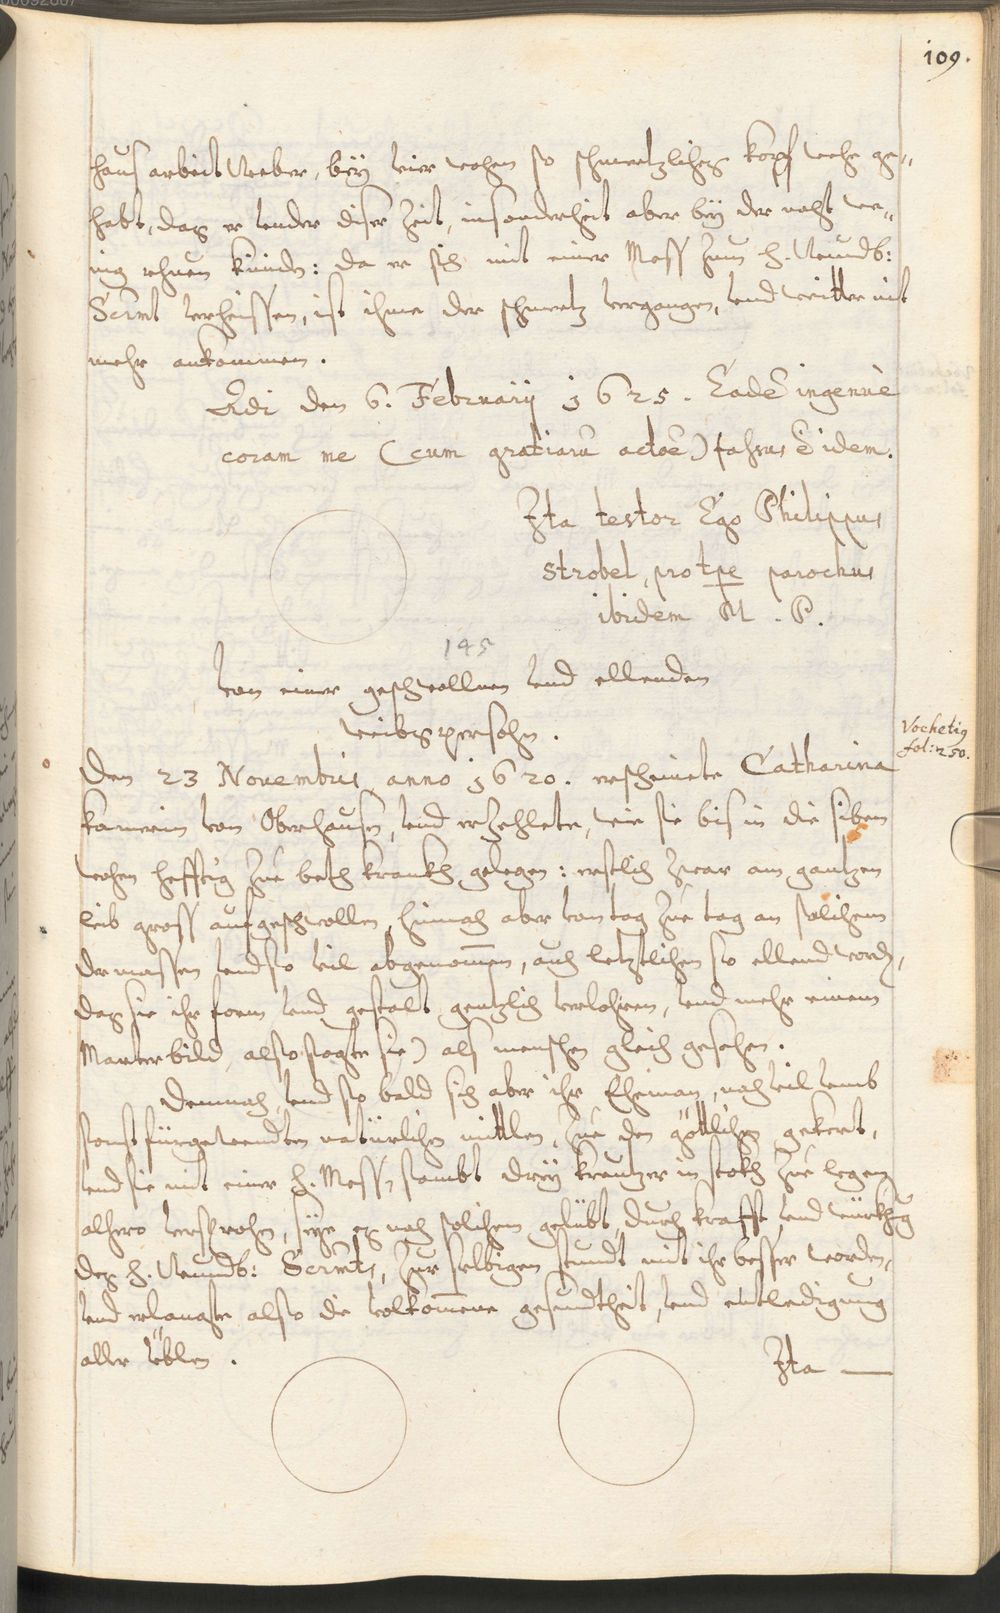 109.
haus arbeit Weber, bëy vier wochen so schmertzliches kopf wehe ge„
habt, das er under diser Zeit, insonderheit aber bëy der nacht we„
nig rhuen künde: da er sich mit einer Mess zum h. Wundb:
Scrmt verheissen, ist ihme der schmertz vergangen, und weitter nit
mehr ankommen.
den 6. Februarij 1625. Eadē ingenuè
coram me (cum gratiarū actōe) fassus ē idem.
Ita testor Ego Philippus
Strobel, pro tpe parochus
ibidem M. P.
195
Von einer geschwollnen und ellenden
weibspersohn.
Vochetig
fol: 250.
Den 23 Novembris anno 1620. erscheinete Catharina
von Oberhausen, und erzehlete, wie sie bis in die siben
wochen hefftig zue beth kranckh gelegen: erstlich zwar am gantzen
leib gross aufgeschwollen, hirnach aber von tag zue tag an solichem
dermassen und so vil abgenom̅en, auch letztlichen so ellend word,
das sie ihr form und gestalt gentzlich verlohren, und mehr einem
Marterbild, (also sagte sie) als menschen gleich gesehen.
Demnach und so bald sich aber ihr Eheman, nach vil umb
sonst fürgewendten natürlichen mittlen, zue den göttlichen gekert,
und sie mit einer h. Mess, sambt dreÿ kreutzer in stockh zue legen
alhero versprochen, seÿe es nach solichem gelübt, durch krafft und würckhg
des h. Wundb: Scrmts, zur selbigen stundt mit ihr besser worden,
und erlangte also die volkom̅ene gesundtheit, und entledigung
aller üblen.
Ita —